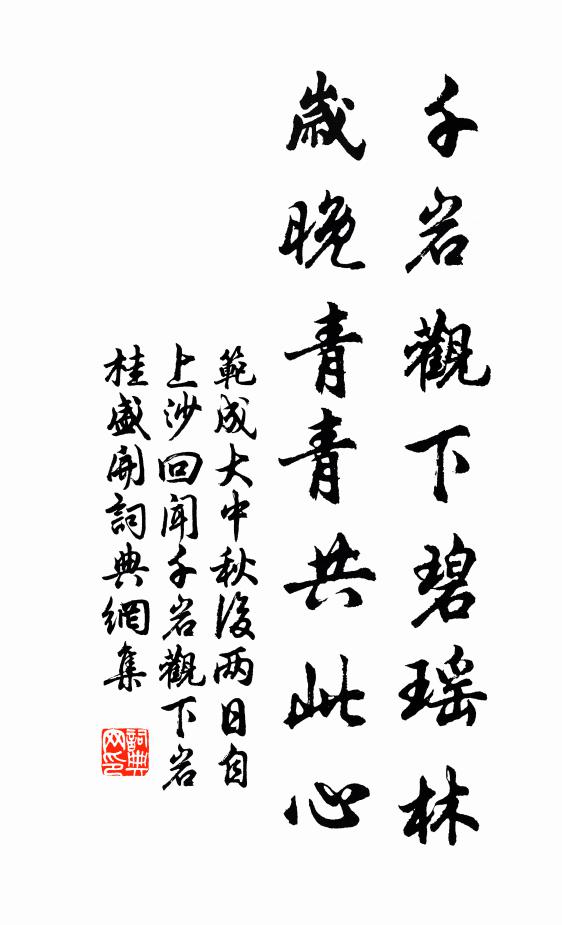 千岩觀下碧瑶林
歲晚青青共此心
範成大中秋後两日自
上沙回聞千岩觀下岩
桂盛開詞典網集
詞典网印